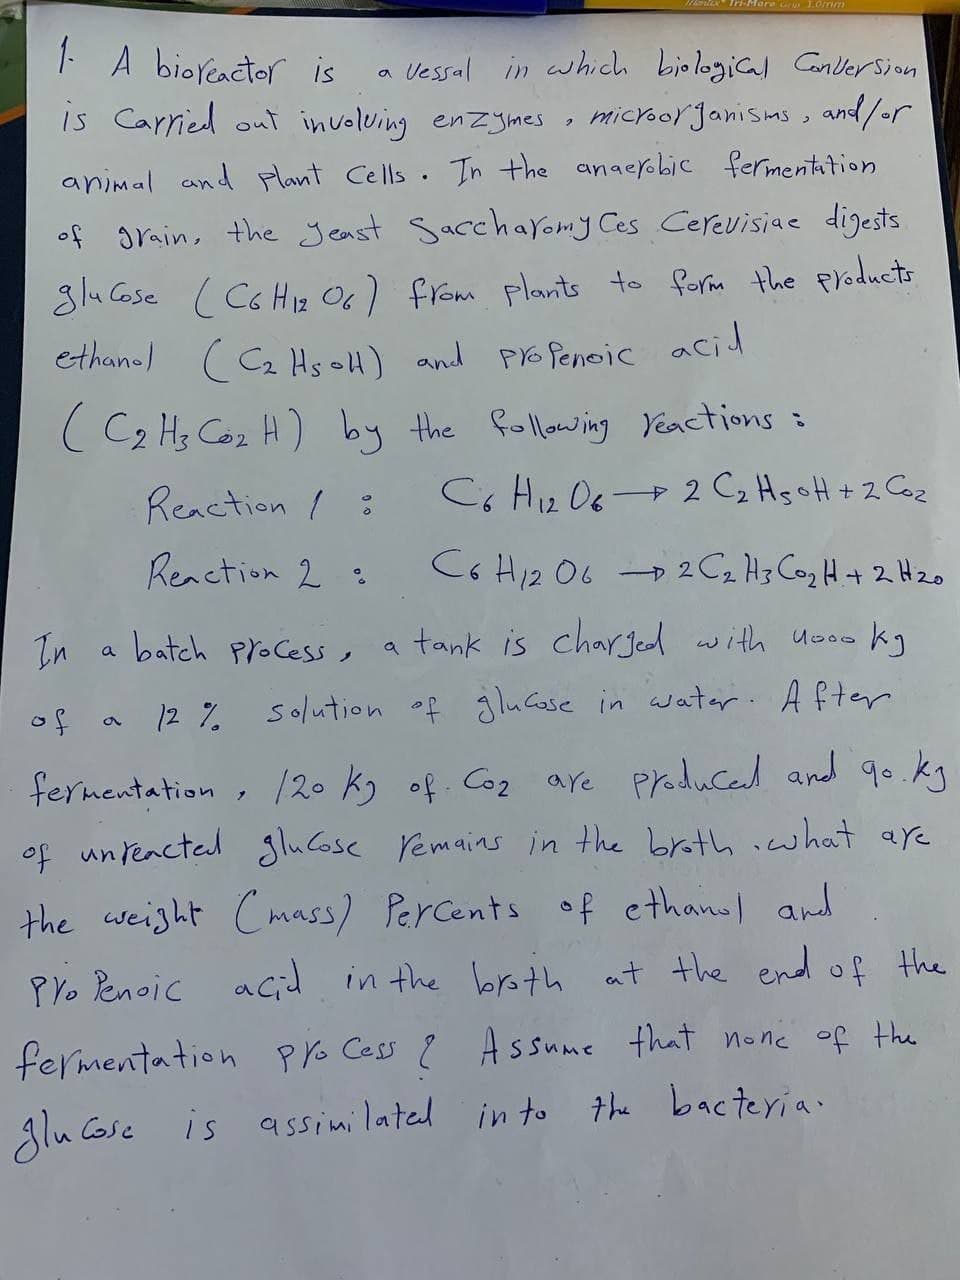 Tri-Mare Grip 1.0mm
1. A bioreactor is a vessal in which biological Conversion
is Carried out involving enzymes, microorganisms, and/or
animal and plant Cells. In the anaerobic fermentation
of grain, the yeast Saccharomyces Cerevisiae digests
glucose (C6H12O6) from plants to form the products
ethanol (C2H5OH) and propenoic acid
(C2H3CO2H) by the following reactions:
Reaction 1: C6H12O6 → 2C2H5OH + 2CO2
Reaction 2: C6H12O6 → 2C2H3CO2H + 2H2O
In a batch process, a tank is charged with 4000 kg
of a 12% solution of glucose in water. After
fermentation, 120 kg of CO2 are produced and 90 kg
of unreacted glucose remains in the broth. what are
the weight (mass) Percents of ethanol and
propenoic acid in the broth at the end of the
fermentation process? Assume that none of the
glucose is assimilated into the bacteria.